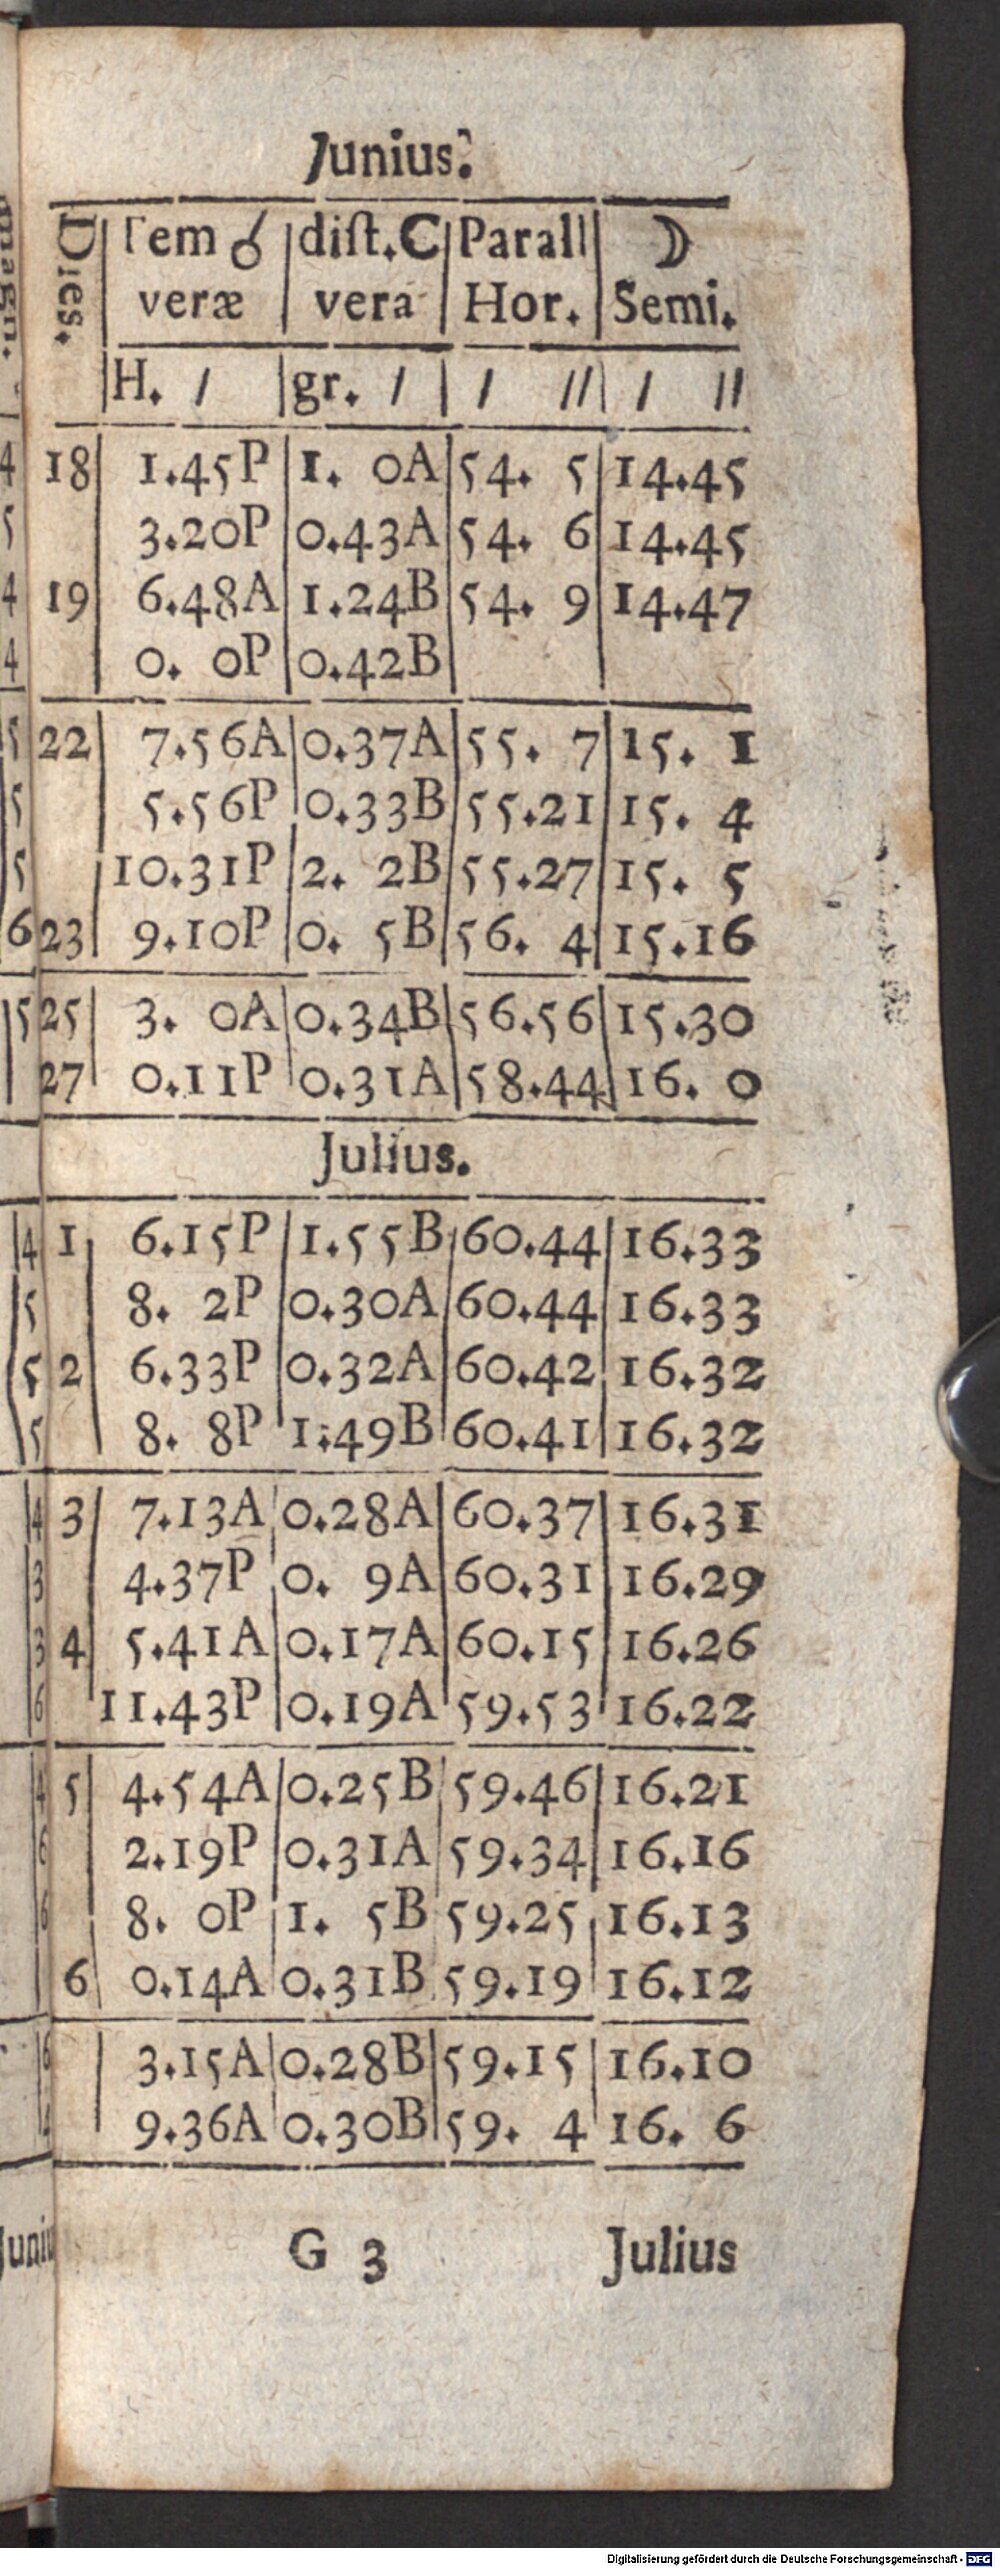 Junius.
Dies. Tem ☌ dist.C Parall ☽
veræ vera Hor. Semi.
H. / gr. / / // / //
18 1.45P 1. 0A 54. 5 14.45
3.20P 0.43A 54. 6 14.45
19 6.48A 1.24B 54. 9 14.47
0. 0P 0.42B
22 7.56A 0.37A 55. 7 15. 1
5.56P 0.33B 55.21 15. 4
10.31P 2. 2B 55.27 15. 5
23 9.10P 0. 5B 56. 4 15.16
25 3. 0A 0.34B 56.56 15.30
27 0.11P 0.31A 58.44 16. 0
Julius.
1 6.15P 1.55B 60.44 16.33
8. 2P 0.30A 60.44 16.33
2 6.33P 0.32A 60.42 16.32
8. 8P 1.49B 60.41 16.32
3 7.13A 0.28A 60.37 16.31
4.37P 0. 9A 60.31 16.29
4 5.41A 0.17A 60.15 16.26
11.43P 0.19A 59.53 16.22
5 4.54A 0.25B 59.46 16.21
2.19P 0.31A 59.34 16.16
8. 0P 1. 5B 59.25 16.13
6 0.14A 0.31B 59.19 16.12
3.15A 0.28B 59.15 16.10
9.36A 0.30B 59. 4 16. 6
G 3 Julius
Digitalisierung gefördert durch die Deutsche Forschungsgemeinschaft - DFG